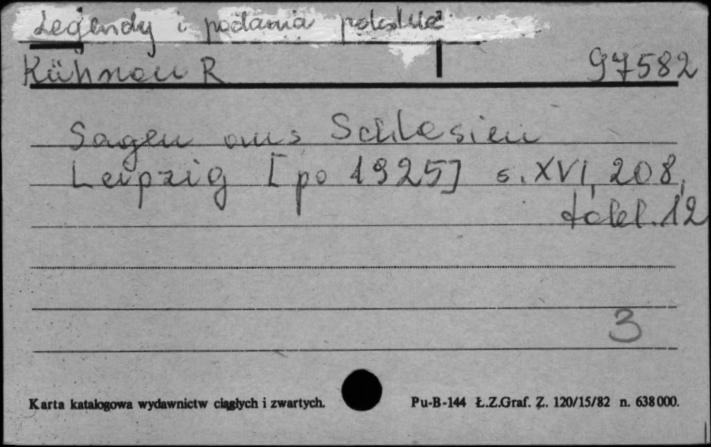 Legendy i podania polskie
Kühnau R 97582
Sagen aus Schlesien
Leipzig [po 1925] s. XVI, 208,
tabl. 12
3
Karta katalogowa wydawnictw ciągłych i zwartych.
Pu-B-144 Ł.Z.Graf. Z. 120/15/82 n. 638000.